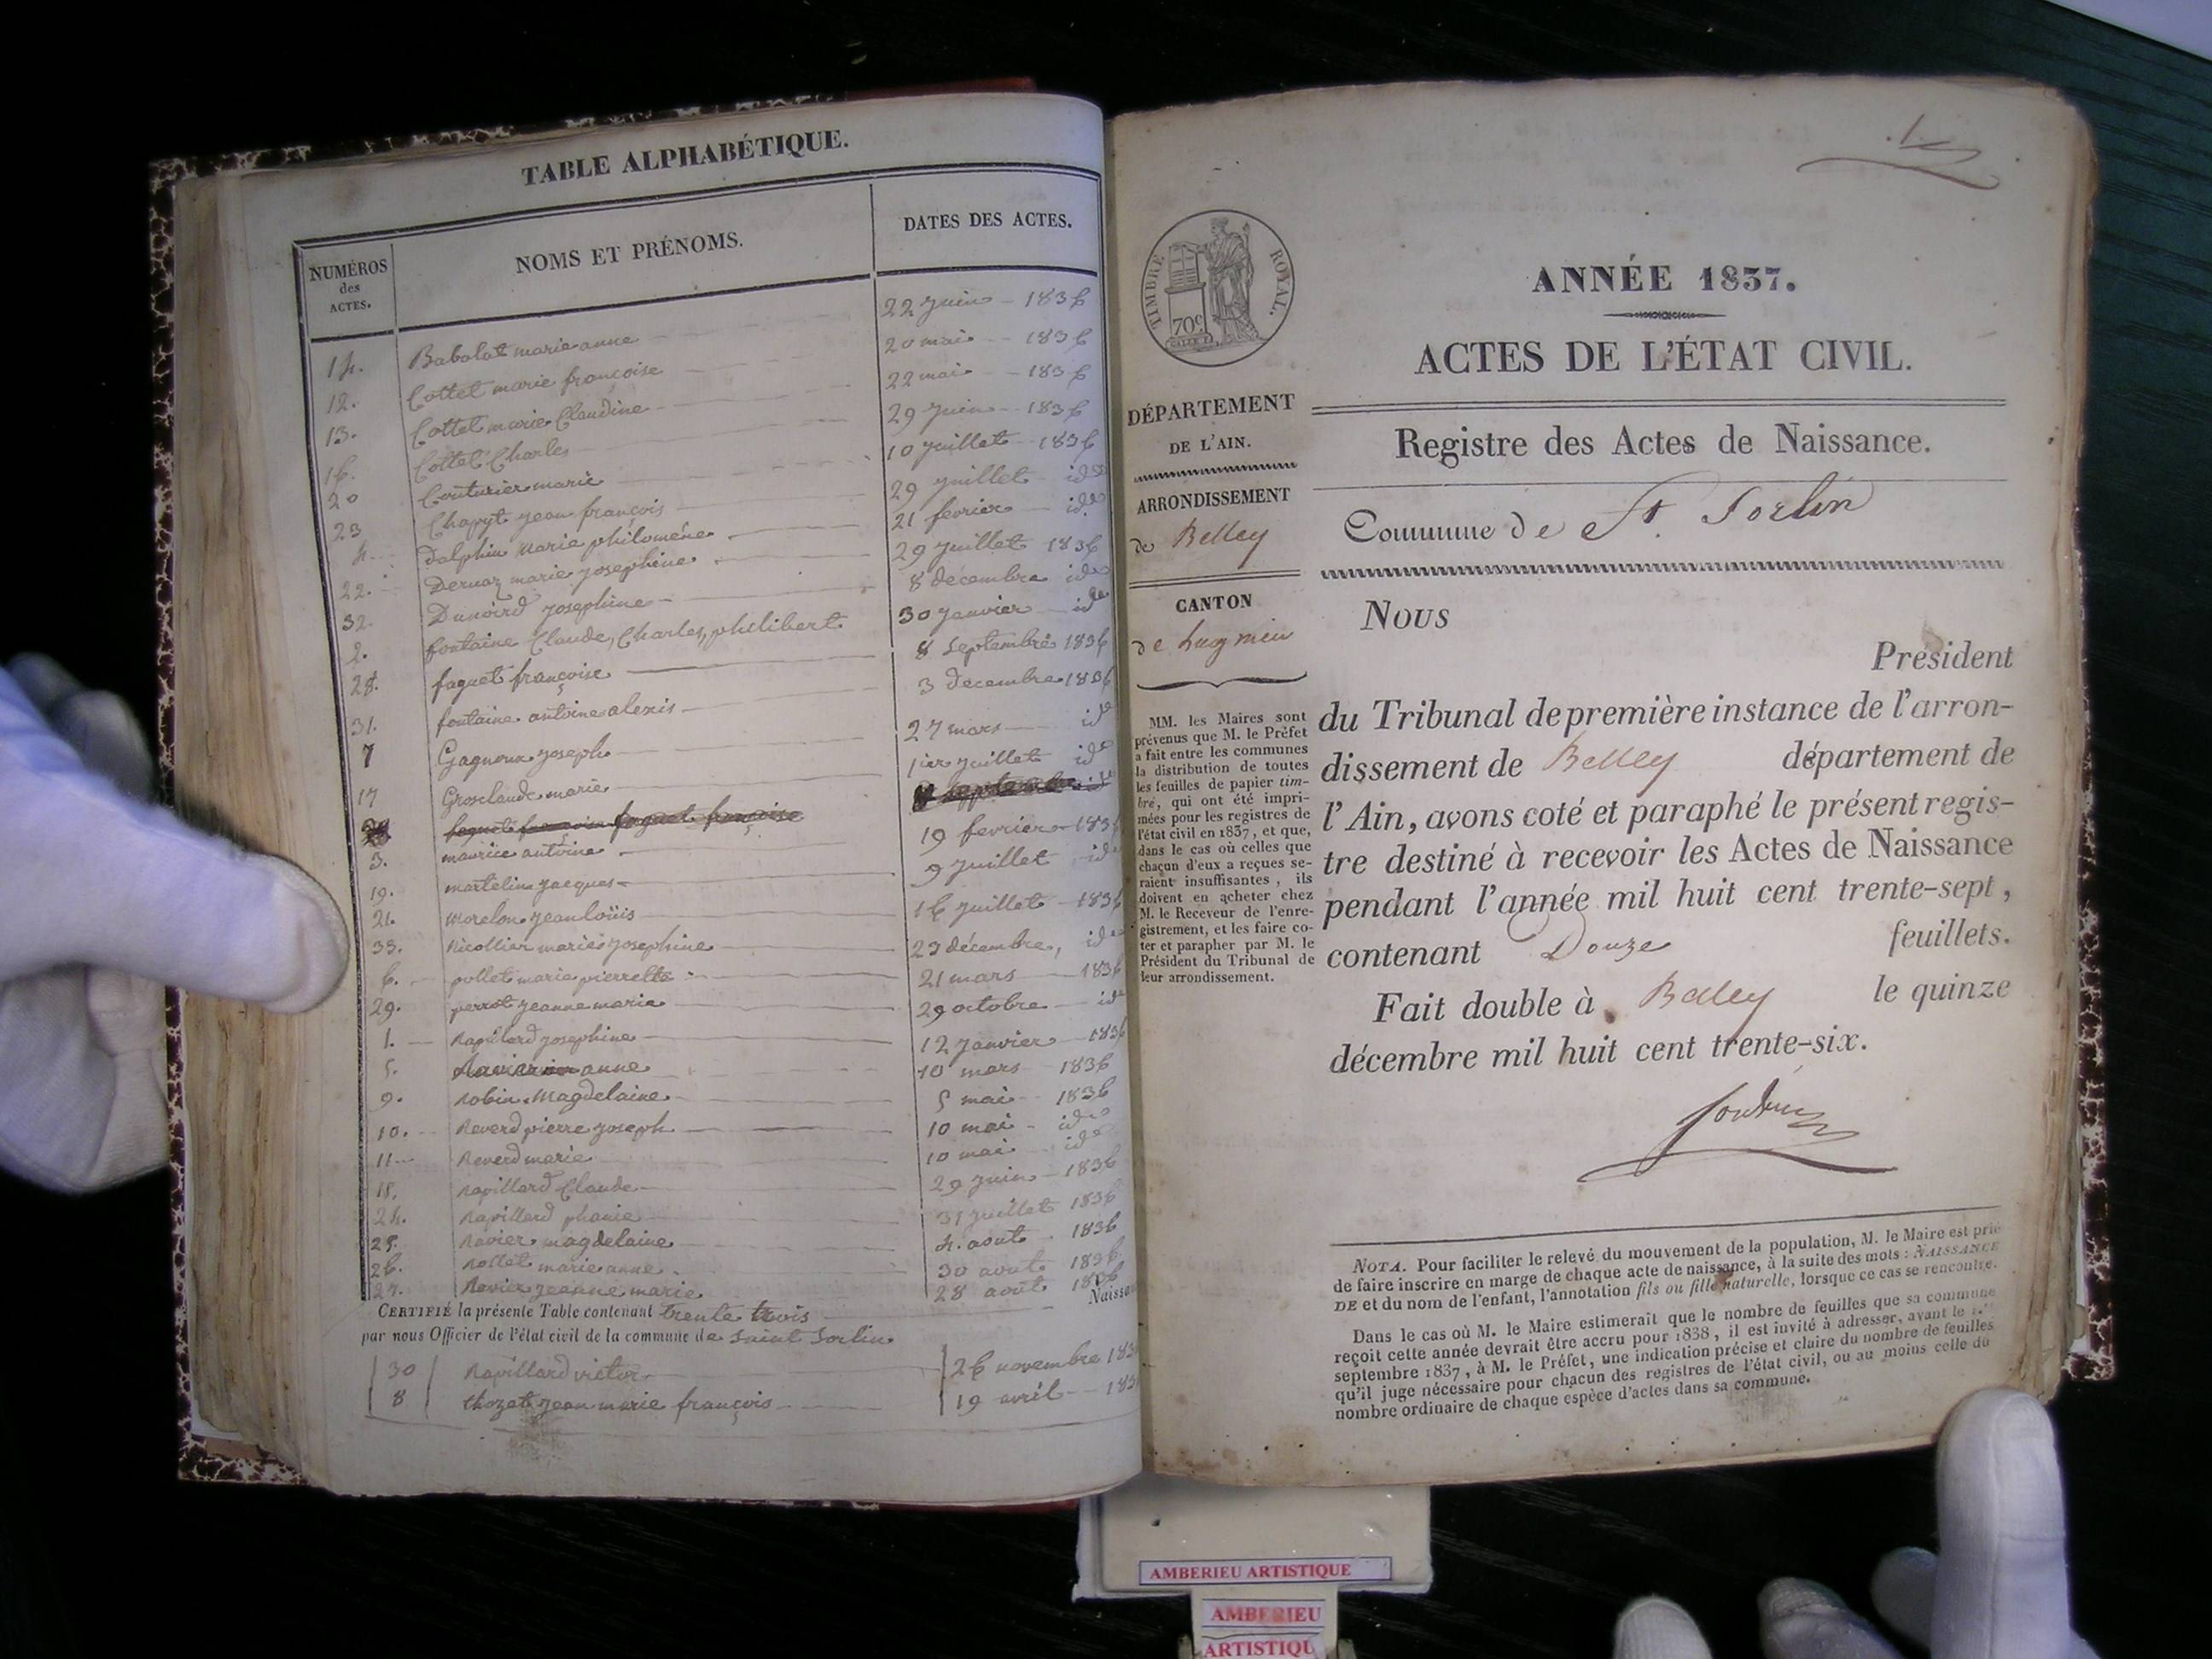 TABLE ALPHABÉTIQUE.
NUMÉROS des ACTES. NOMS ET PRÉNOMS. DATES DES ACTES.
14. Babolat marie anne 22 juin 1836
12. Cottet marie françoise 20 mai 1836
13. Cottet marie Claudine 22 mai 1836
16. Cottet Charles 29 juin 1836
20 Couturier marie 10 juillet 1836
23 Chapyt jean françois 29 juillet id
4. Dalphin marie philomène 21 fevrier id
22. Dernaz marie josephine 29 juillet 1836
32. Dunoird josephine 8 decembre id
2. fontaine Claude, Charles, philibert 30 janvier id
28. faguet françoise 8 septembre 1836
31. fontaine antoine alexis 3 decembre 1836
7 Gagnoux joseph 27 mars id
17 Groselaude marie 1ier juillet id
faguet françoise
3. maurice antoine 19 fevrier 1836
19. martelin jacques 9 juillet id
21. morelon jean loüis 16 juillet 1836
33. Nicollier marie josephine 23 décembre, id
6. pollet marie pierrette 21 mars 1836
29. perrot jeanne marie 29 octobre id
1. Rapillard josephine 12 janvier 1836
5. anne 10 mars 1836
9. Robin Magdelaine 5 mai 1836
10. Reverd pierre joseph 10 mai id
11 Reverd marie 10 mai id
18. Rapillard Claude 29 juin 1836
24. Rapillard phanie 31 juillet 1836
25. Ravier magdelaine 4. aout 1836
26. Rollet marie anne 30 aout 1836
27. Ravier jeanne marie 28 août 1836
CERTIFIÉ la présente Table contenant trente trois
par nous Officier de l'état civil de la commune de Saint Sorlin
30 Rapillard victor 26 novembre
8 thozet jean marie françois 19 avril
TIMBRE ROYAL.
70c
DÉPARTEMENT
DE L'AIN.
ARRONDISSEMENT
de Belley
CANTON
de Lagnieu
MM. les Maires sont
prévenus que M. le Préfet
a fait entre les communes
la distribution de toutes
les feuilles de papier tim-
bré, qui ont été impri-
mées pour les registres de
l'état civil en 1837, et que,
dans le cas où celles que
chacun d'eux a reçues se-
raient insuffisantes, ils
doivent en acheter chez
M. le Receveur de l'enre-
gistrement, et les faire co-
ter et parapher par M. le
Président du Tribunal de
leur arrondissement.
1
ANNÉE 1837.
ACTES DE L'ÉTAT CIVIL.
Registre des Actes de Naissance.
Commune de St. Sorlin
Nous
Président
du Tribunal de première instance de l'arron-
dissement de Belley département de
l'Ain, avons coté et paraphé le présent regis-
tre destiné à recevoir les Actes de Naissance
pendant l'année mil huit cent trente-sept,
contenant Douze feuillets.
Fait double à Belley le quinze
décembre mil huit cent trente-six.
NOTA. Pour faciliter le relevé du mouvement de la population, M. le Maire est prié
de faire inscrire en marge de chaque acte de naissance, à la suite des mots : NAISSANCE
DE et du nom de l'enfant, l'annotation fils ou fille naturelle, lorsque ce cas se rencontre.
Dans le cas où M. le Maire estimerait que le nombre de feuilles que sa commune
reçoit cette année devrait être accru pour 1838, il est invité à adresser, avant le 1.er
septembre 1837, à M. le Préfet, une indication précise et claire du nombre de feuilles
qu'il juge nécessaire pour chacun des registres de l'état civil, ou au moins celle du
nombre ordinaire de chaque espèce d'actes dans sa commune.
AMBERIEU ARTISTIQUE
AMBERIEU
ARTISTIQU